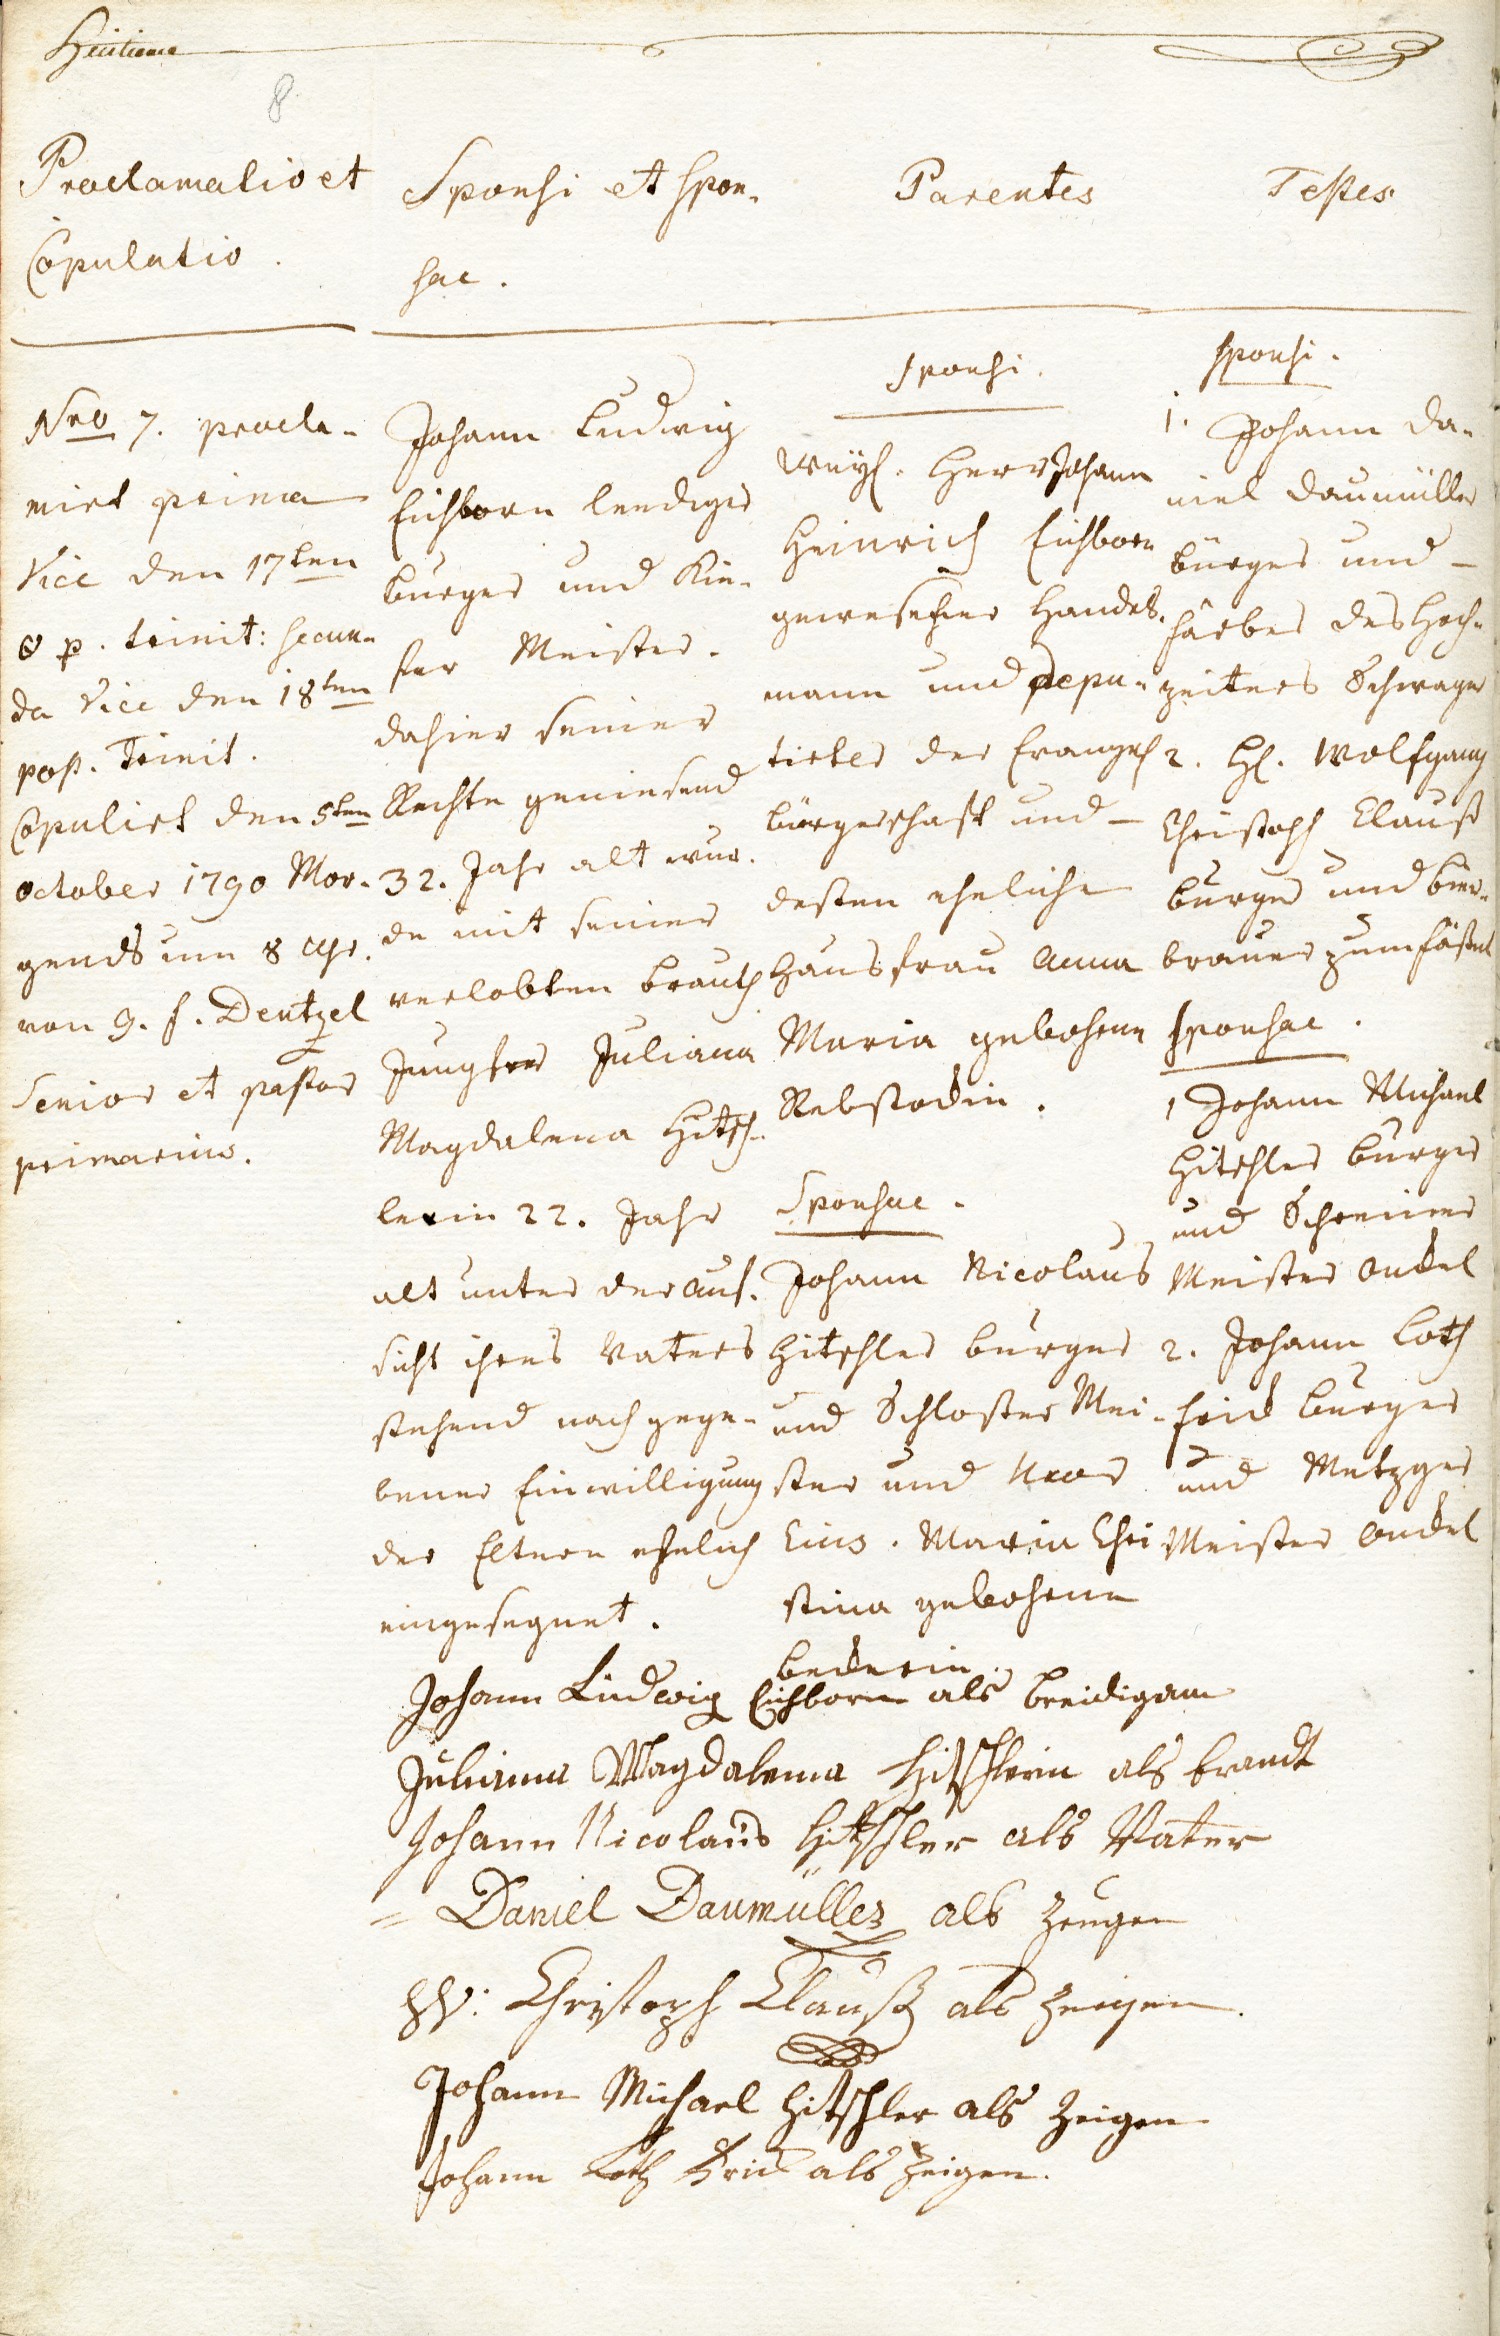 Huitieme
8
Proclamatio et
Copulatio.
Sponsi et spon-
sae.
Parentes
Testes
Nro 7. procla-
mirt prima
Vice den 17ten
p. trinit: secun-
da Vice den 18ten
post. Trinit.
Copulirt den 5ten
October 1790 Mor-
gends um 8 Uhr.
von G. F. Dentzel
Senior et pastor
primarius.
Johann Ludwig
Eichborn leediger
burger und Kie-
fer Meister.
dahier seiner
Rechte geniesend
32. Jahr alt wur-
de mit seiner
verlobten brauth
Jungfer Juliana
Magdalena Hitsch-
lerin 22. Jahr
alt unter der auf-
sicht ihres Vaters
stehend nach gege-
bener Einwilligung
der Eltern ehelich
eingesegnet.
Sponsi.
Weyl. Herr Johann
Heinrich Eichborn
gewesener Handels-
mann und depu-
tirter der Evangel
bürgerschaft und
desten eheliche
hausfrau Anna
Maria gebohrne
Rebstockin.
Sponsae.
Johann Nicolaus
Hitschler burger
und Schlosser Mei-
ster und
Eius. Maria Chri
stina gebohrne
beckerin.
Sponsi.
1. Johann Da-
niel Daumüller
bürger und
färber des Hoch-
zeiters Schwager
2. H. Wolfgang
Christoph Clauß
burger und bier-
brauer zum fässel
Sponsae.
1 Johann Michael
Hitschler burger
und Schreiner
Meister Onckel
2. Johann Loth
frick burger
und Metzger
Meister Onckel
Johann Ludwig Eichborn als breidigam
Juliana Magdalena Hitschlerin als braudt
Johann Nicolaus Hitschler als Vater
= Daniel Daumüller als Zeugen
W: Christoph Clauß als Zeigen.
Johann Michael Hitschler als Zeigen
Johann Loth Frick als Zeigen.